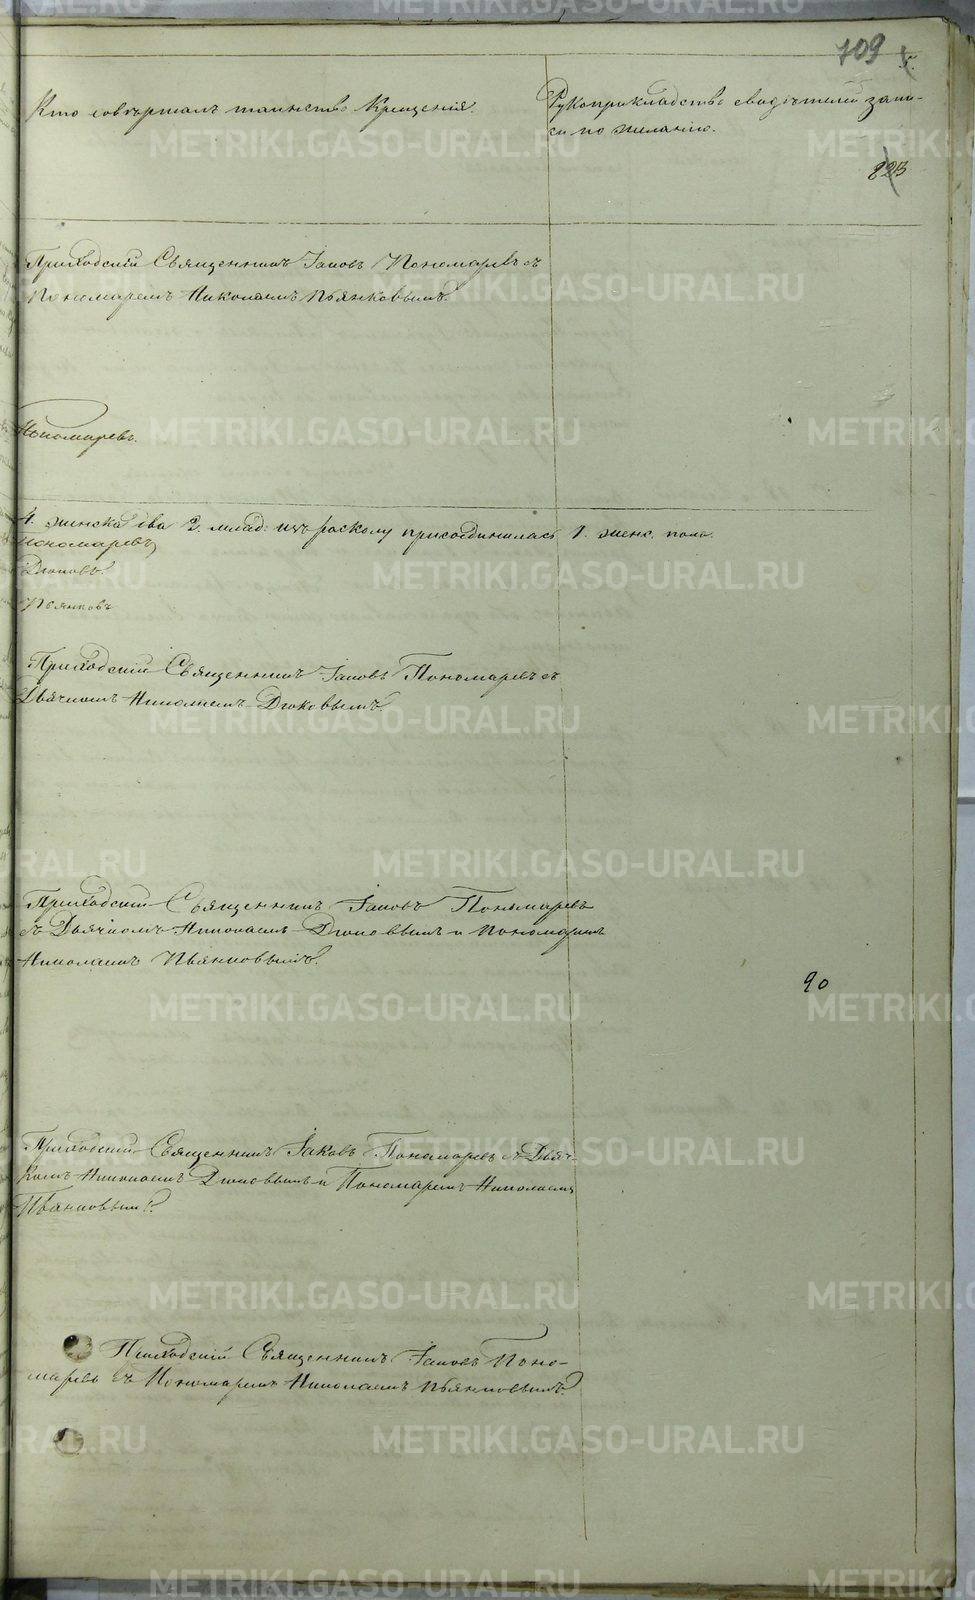 709
Кто совершалъ таинство Крещенія.
Рукоприкладство свидѣтелей запи-
си по желанію.
823
Приходскій Священникъ Іаковъ Пономаревъ съ
Пономаремъ Николаемъ Пьянковымъ.
Пономаревъ.
4. женска два 2. млад: изъ расколу присоединилась 1. женс. пола.
Пономаревъ
Дюковъ.
Пьянковъ
Приходскій Священникъ Іаковъ Пономаревъ съ
Дьячкомъ Николаемъ Дюковымъ.
Приходскій Священникъ Іаковъ Пономаревъ
съ Дьячкомъ Николаемъ Дюковымъ и Пономаремъ
Николаемъ Пьянковымъ.
90
Приходскій Священникъ Іаковъ Пономаревъ съ Дьяч-
комъ Николаемъ Дюковымъ и Пономаремъ Николаемъ
Пьянковымъ.
Приходскій Священникъ Іаковъ Поно-
маревъ съ Пономаремъ Николаемъ Пьянковымъ.
METRIKI.GASO-URAL.RU